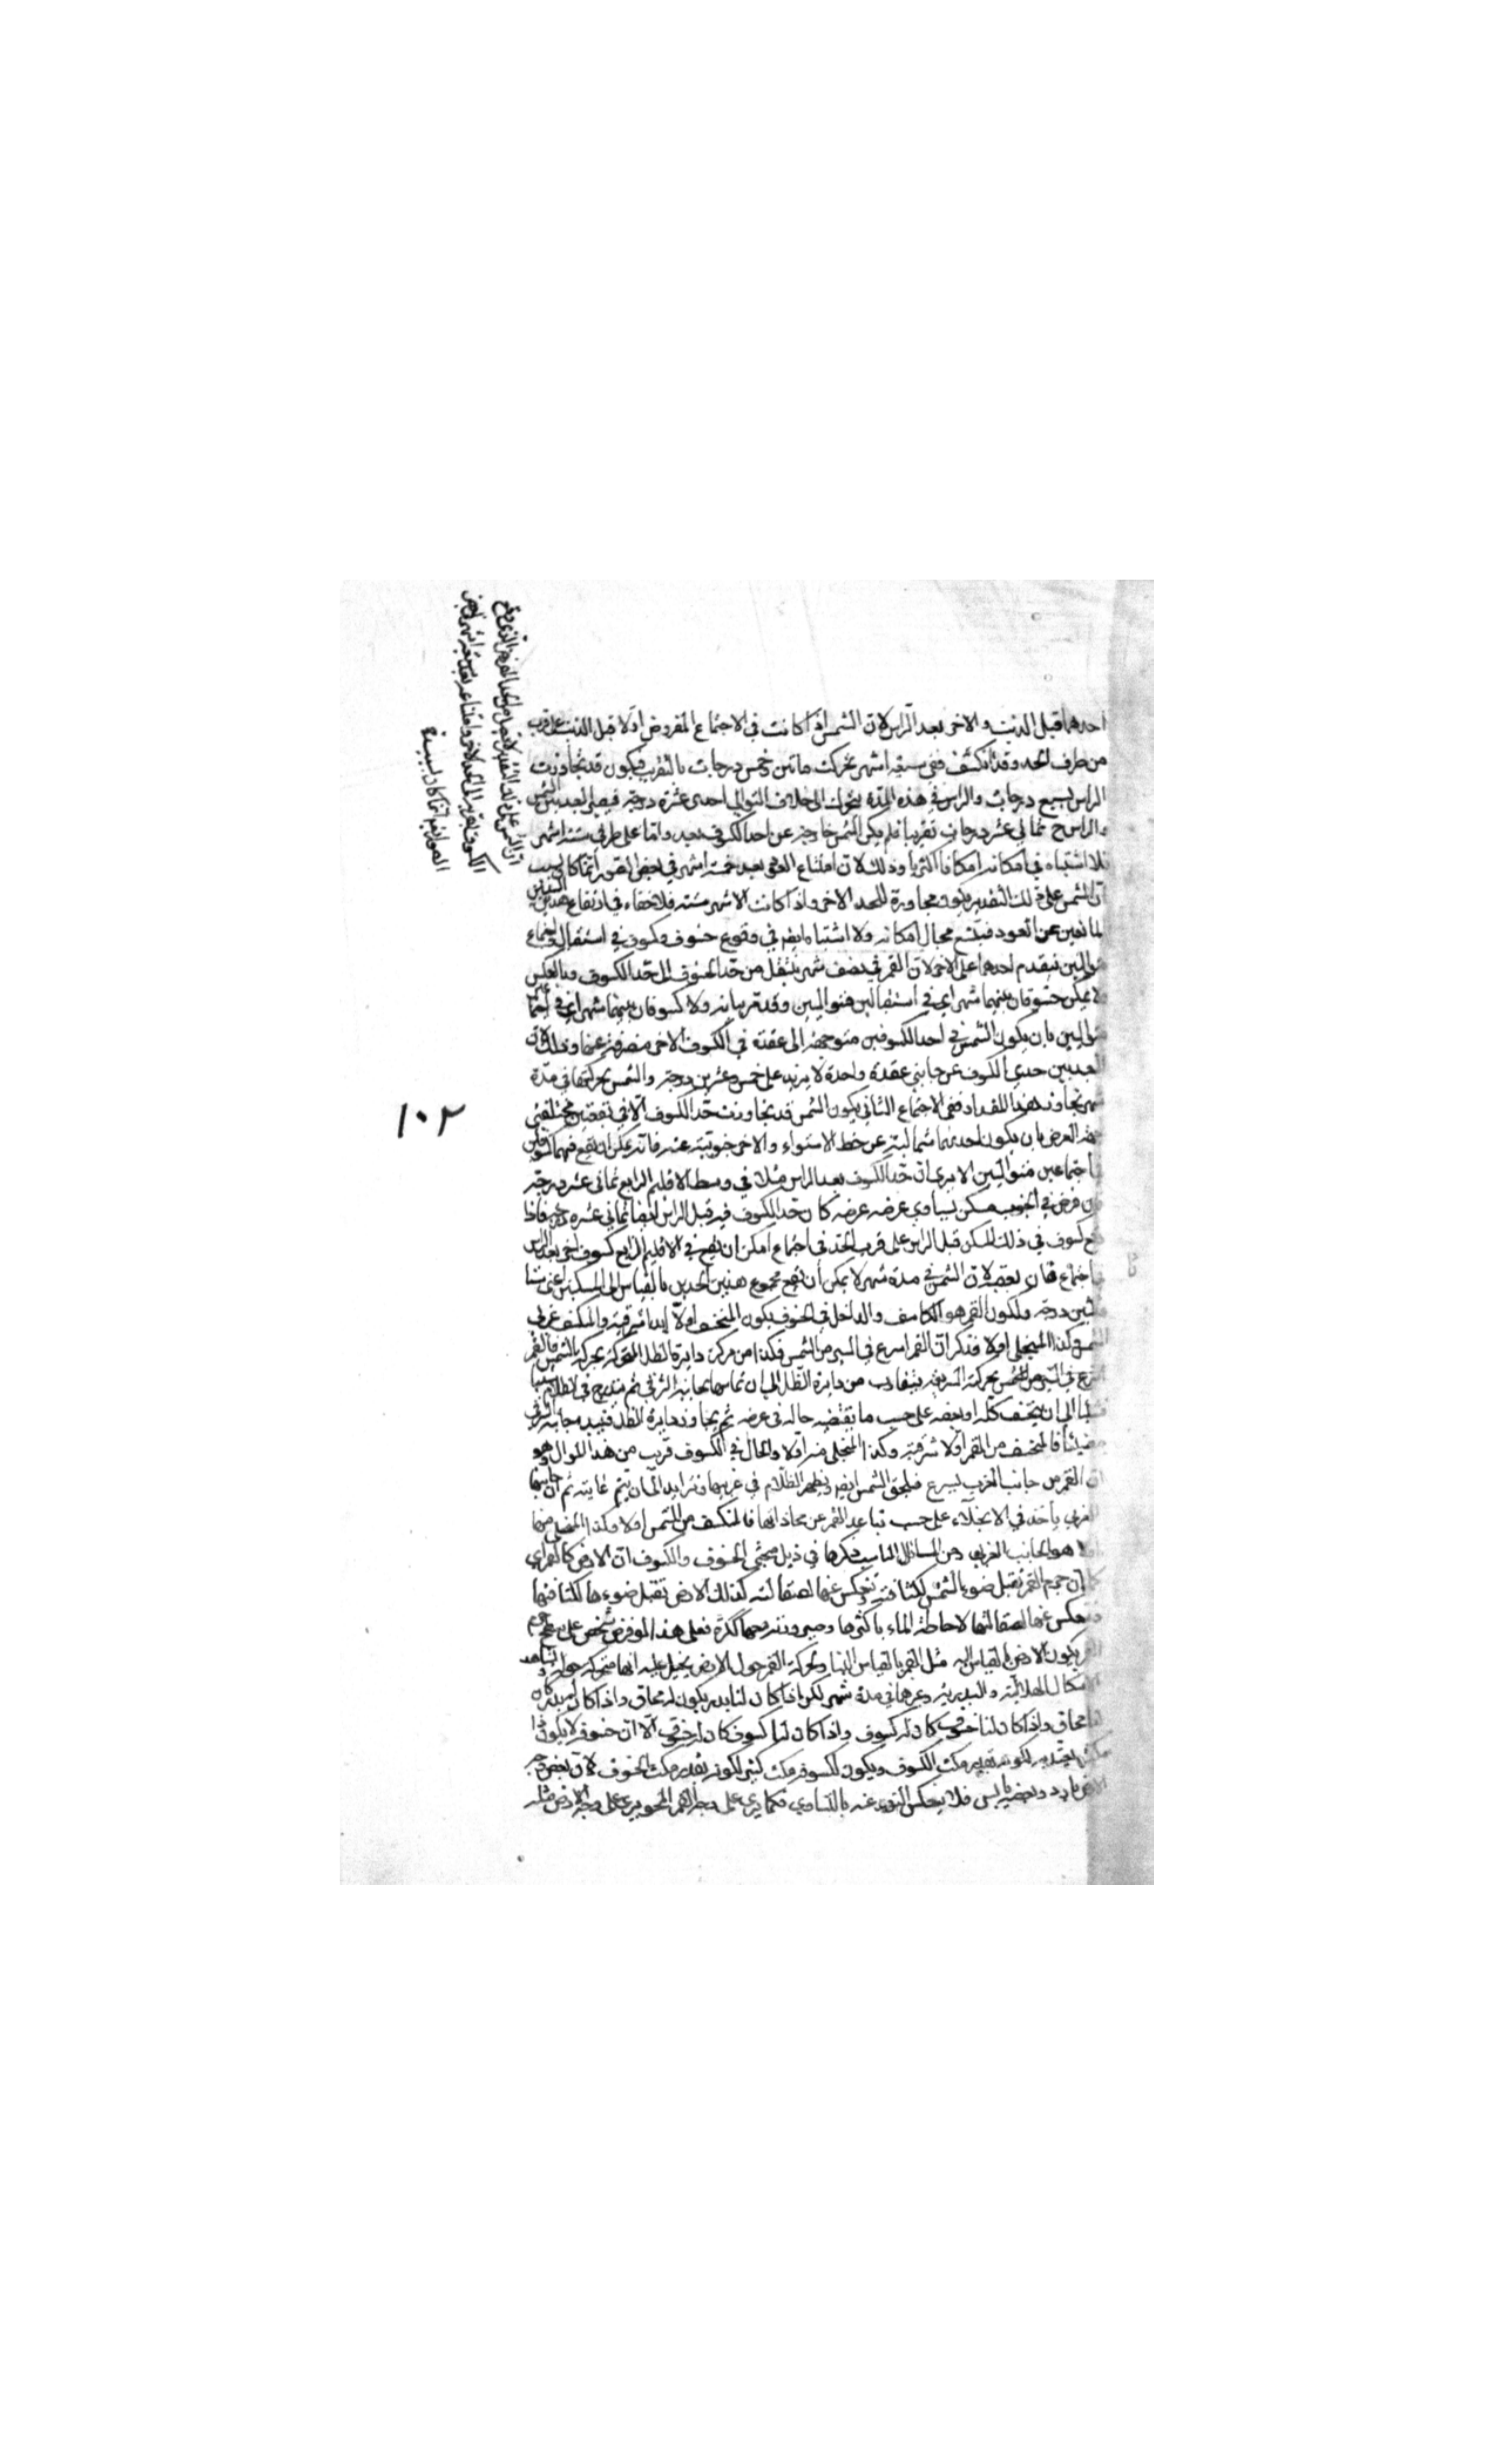 احدهما قبل الذنب والاخر بعد الراس لان الشمس اذا كانت في الاجتماع المفروض اولا قبل الذنب على قرب
من طرف الحد وقد انكسف ففي سبعة اشهر تحركت مائتين وخمس درجات بالتقريب فيكون قد تجاوزت
الراس بسبع درجات والراس في هذه المدة يتحرك الى خلاف التوالي احدى عشرة درجة فيصير البعد بين الشمس
والراس ح ثماني عشر درجات تقريبا فلم يكن الشمس خارجة عن احد الكسوف بعيد واما على طرفي ستة اشهر
فلا اشتباه في امكانه امكانا اكثريا وذلك لان امتناع العود بعد خمسة اشهر في بعض الصور انما كان لسبب
ان الشمس على ذلك التقدير يكون مجاورة للحد الاخر واذا كانت الاشهر ستة فلا خفاء في ارتفاع هذين السببين
المانعين عن العود فيتسع مجال امكانه ولا اشتباه ايضا في وقوع خسوف وكسوف في استقبال واجتماع
متواليين يتقدم احدهما على الاخر لان القمر في نصف شهر ينتقل من حد الخسوف الى حد الكسوف وبالعكس
ولا يمكن خسوفان بينهما شهر اي في استقبالين متواليين وقد مر بيانه ولا كسوفان بينهما شهر اي في اجتماعين
متواليين بان يكون الشمس في احد الكسوفين متوجهة الى عقدة في الكسوف الاخر منصرفة عنها وذلك لان
البعد بين حدي الكسوف عن جانبي عقدة واحدة لا يزيد على خمس وعشرين درجة والشمس بحركتها في مدة
شهر تجاوز هذا المقدار ففي الاجتماع الثاني يكون الشمس قد تجاوزت حد الكسوف الا في بقعتين مختلفتي
جهة العرض بان يكون احديهما شمالية عن خط الاستواء والاخر جنوبية عنه فانه يمكن ان يقع فيهما كسوفان
في اجتماعين متواليين الا يرى ان حد الكسوف بعد الراس مثلا في وسط الاقليم الرابع ثماني عشر درجة
فان فرض في الجنوب مسكن يساوي عرضه عرضه كان حد الكسوف فيه قبل الراس ايضا ثماني عشرة درجة فاذا
وقع كسوف في ذلك المسكن قبل الراس على قرب الحد في اجتماع امكن ان يقع في الاقليم الرابع كسوف اخر بعد الراس
في اجتماع ثان يعقبه لان الشمس في مدة شهر لا يمكن أن تقطع مجموع هذين الحدين بالقياس الى المسكنين اعني ستا
وثلثين درجة ولكون القمر هو الكاسف والداخل في الخسوف يكون المنخسف اولا ابدا شرقية والمنكسف غربي
الشمس وكذا المنجلي اولا قد ذكر ان القمر اسرع في السير من الشمس فكذا من مركز دايرة الظل المتحركة بحركة الشمس فالقمر
اسرع في السير من الشمس بحركته السريعة يتقارب من دايرة الظل الى ان تماسها بجانبه الشرقي ثم يندرج في الظلام شيئا
فشيئا الى ان ينخسف كله او بعضه على حسب ما يقتضيه حاله في عرضه ثم يجاوز دايرة الظل فيبدو جانبه الشرقي
مضيئا فالمنخسف من القمر اولا شرقية وكذا المنجلي منه اولا والحال في الكسوف قريب من هذا المنوال وهو
ان القمر من جانب المغرب يسرع فيلحق الشمس ايضا ويظهر الظلام في غربيها وتزايد الى ان يتم غايته ثم ان جانبها
الغربي يأخذ في الانجلاء على حسب تباعد القمر عن محاذاتها فالمنكسف من الشمس اولا وكذا المنجلي منها
اولا هو الجانب الغربي ومن المسائل المناسب ذكرها في ذيل مبحثي الخسوف والكسوف ان الارض كالقمر اي
كما ان جرم القمر يقبل ضوء الشمس لكثافته وتنعكس عنها لصقالته كذلك الارض تقبل ضوءها لكثافتها
وتنعكس عنها لصقالتها لاحاطة الماء باكثرها وصيرورته معها ككرة فعلى هذا لو فرض شخص على جرم
القمر يكون الارض بالقياس اليه مثل القمر بالقياس الينا ولحركة القمر حول الارض يخيل عليه انها متحركة حوله ويشاهد
الاشكال الهلالية والبدرية وغيرها في مدة شهر لكن اذا كان لنا بدر يكون له محاق واذا كان له بدر كان
لنا محاق واذا كان لنا خسوف كان له كسوف واذا كان لنا كسوف كان له خسوف الا ان خسوفه لا يكون ذا
مكث يعتد به لكونه بقدر مكث الكسوف ويكون لكسوفه مكث كثير لكونه بقدر مكث الخسوف لان بعض جرم
الارض بارد وبعضه يابس فلا ينعكس النور عنه بالتساوي فكما يرى على وجه القمر المحو يرى على وجه الارض مثله
١٠٢